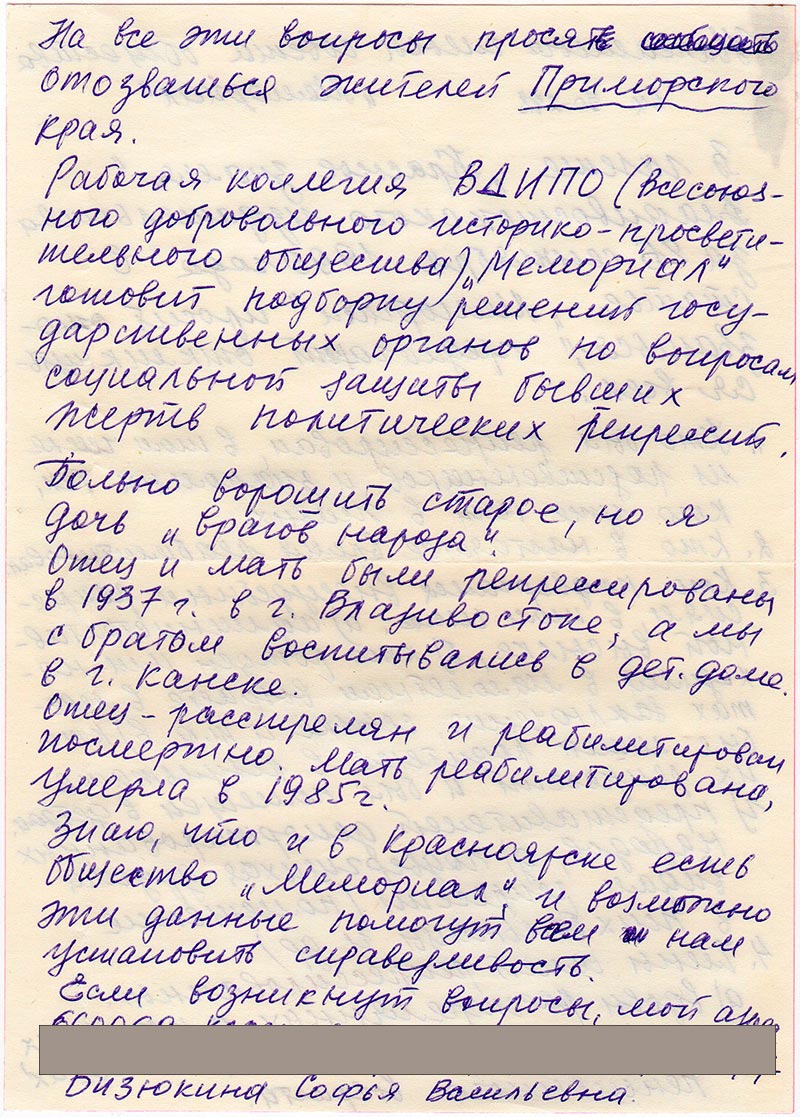 На все эти вопросы просят
отозваться жителей Приморского
края.
Рабочая коллегия ВДИПО (Всесоюз-
ного добровольного историко-просвети-
тельного общества) „Мемориал"
готовит подборку решений госу-
дарственных органов по вопросам
социальной защиты бывших
жертв политических репрессий.
Больно ворошить старое, но я
дочь „врагов народа".
Отец и мать были репрессированы
в 1937 г. в г. Владивостоке, а мы
с братом воспитывались в дет. доме
в г. Канске.
Отец - расстрелян и реабилитирован
посмертно. Мать реабилитирована,
умерла в 1985 г.
Знаю, что и в Красноярске есть
общество „Мемориал", и возможно
эти данные помогут всем нам
установить справедливость.
Если возникнут вопросы, мой адрес
Бизюкина Софья Васильевна.